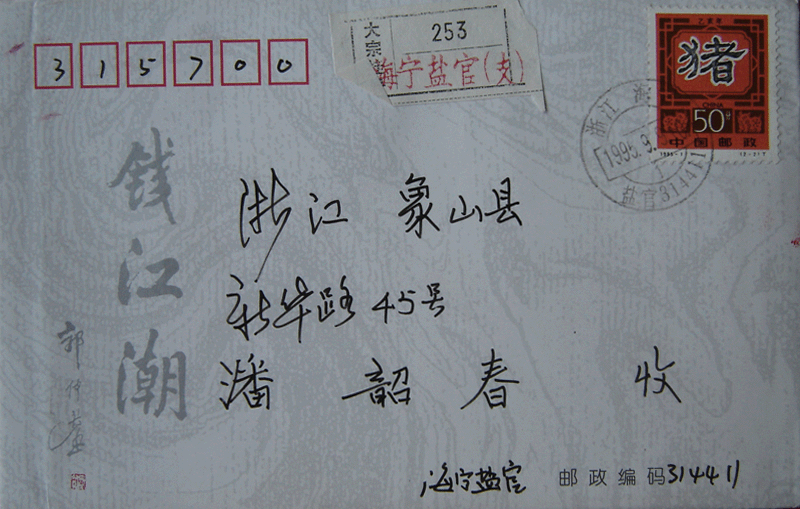 315700
大宗
253
海宁盐官(支)
乙亥年
猪
CHINA
50分
中国邮政
1995-1
(2-2)T
浙江 海
1995.9.
盐官314411
钱江潮
浙江 象山县
新华路45号
潘韶春 收
海宁盐官 邮政编码314411